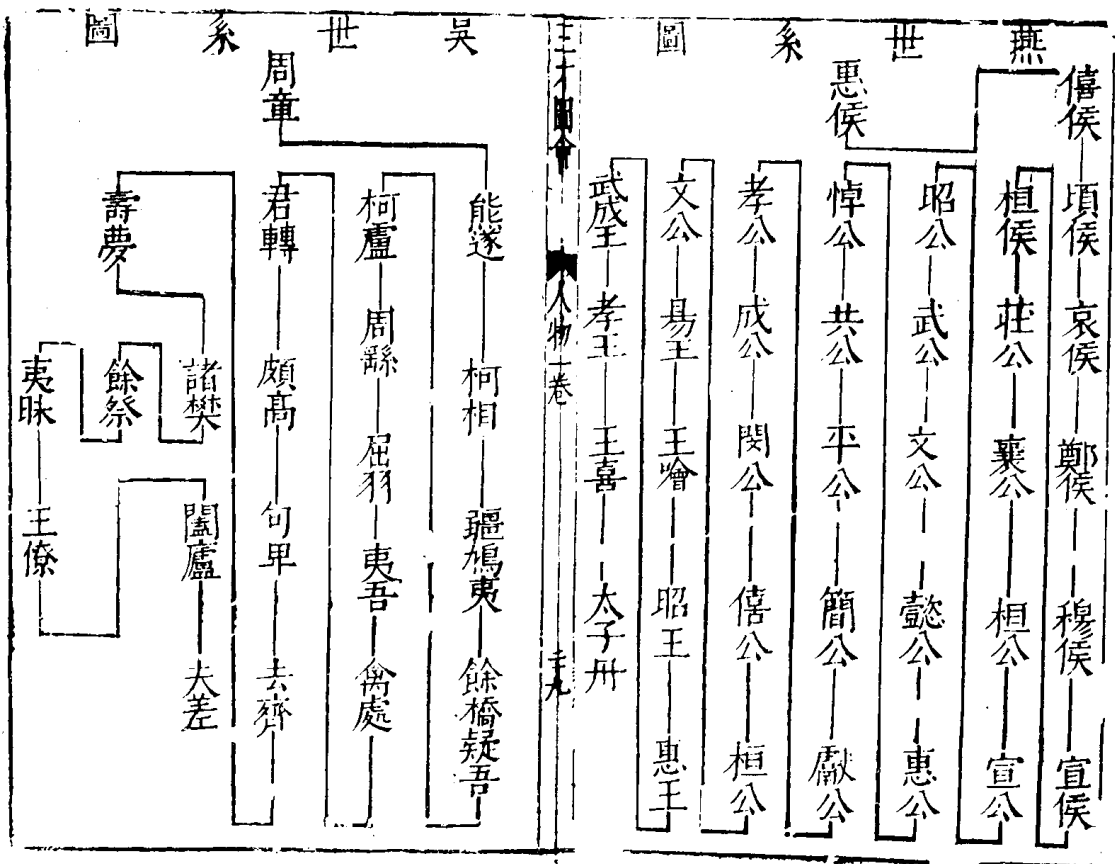 燕世系圖
惠侯
僖侯 頃侯 哀侯 鄭侯 穆侯 宣侯
桓侯 莊公 襄公 桓公 宣公
昭公 武公 文公 懿公 惠公
悼公 共公 平公 簡公 獻公
孝公 成公 閔公 僖公 桓公
文公 昜王 王噲 昭王 惠王
武成王 孝王 王喜 太子丹
三才圖會
人物一卷
二十九
吳世系圖
周章
熊遂 柯相 彊鳩夷 餘橋疑吾
柯盧 周繇 屈羽 夷吾 禽處
君轉 頗高 句卑 去齊
壽夢
諸樊
餘祭
夷昧 王僚
闔廬 夫差